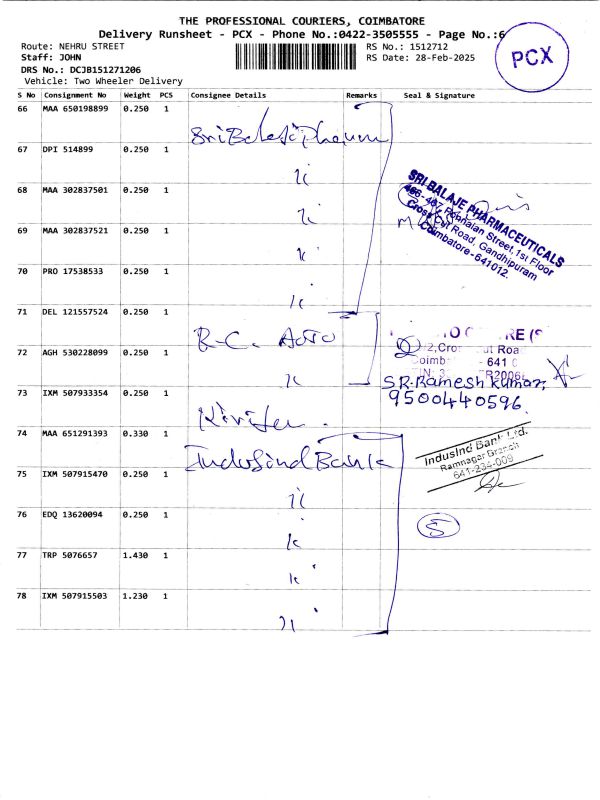 THE PROFESSIONAL COURIERS, COIMBATORE
Delivery Runsheet - PCX - Phone No.:0422-3505555 - Page No.:6
Route: NEHRU STREET
RS No.: 1512712
Staff: JOHN
RS Date: 28-Feb-2025
DRS No.: DCJB151271206
Vehicle: Two Wheeler Delivery
PCX
S No Consignment No Weight PCS Consignee Details Remarks Seal & Signature
66 MAA 650198899 0.250 1
Sri Balaji Pharm
67 DPI 514899 0.250 1
68 MAA 302837501 0.250 1
SRI BALAJE PHARMACEUTICALS
466-467, Ponnaian Street, 1st Floor
Cross Cut Road, Gandhipuram
Coimbatore-641012.
69 MAA 302837521 0.250 1
70 PRO 17538533 0.250 1
71 DEL 121557524 0.250 1
R-C. Auto
72 AGH 530228099 0.250 1
SR. Ramesh Kumar,
9500440596.
73 IXM 507933354 0.250 1
74 MAA 651291393 0.330 1
IndusInd Bank
IndusInd Bank Ltd.
Ramnagar Branch
641-234-009
75 IXM 507915470 0.250 1
76 EDQ 13620094 0.250 1
5
77 TRP 5076657 1.430 1
78 IXM 507915503 1.230 1